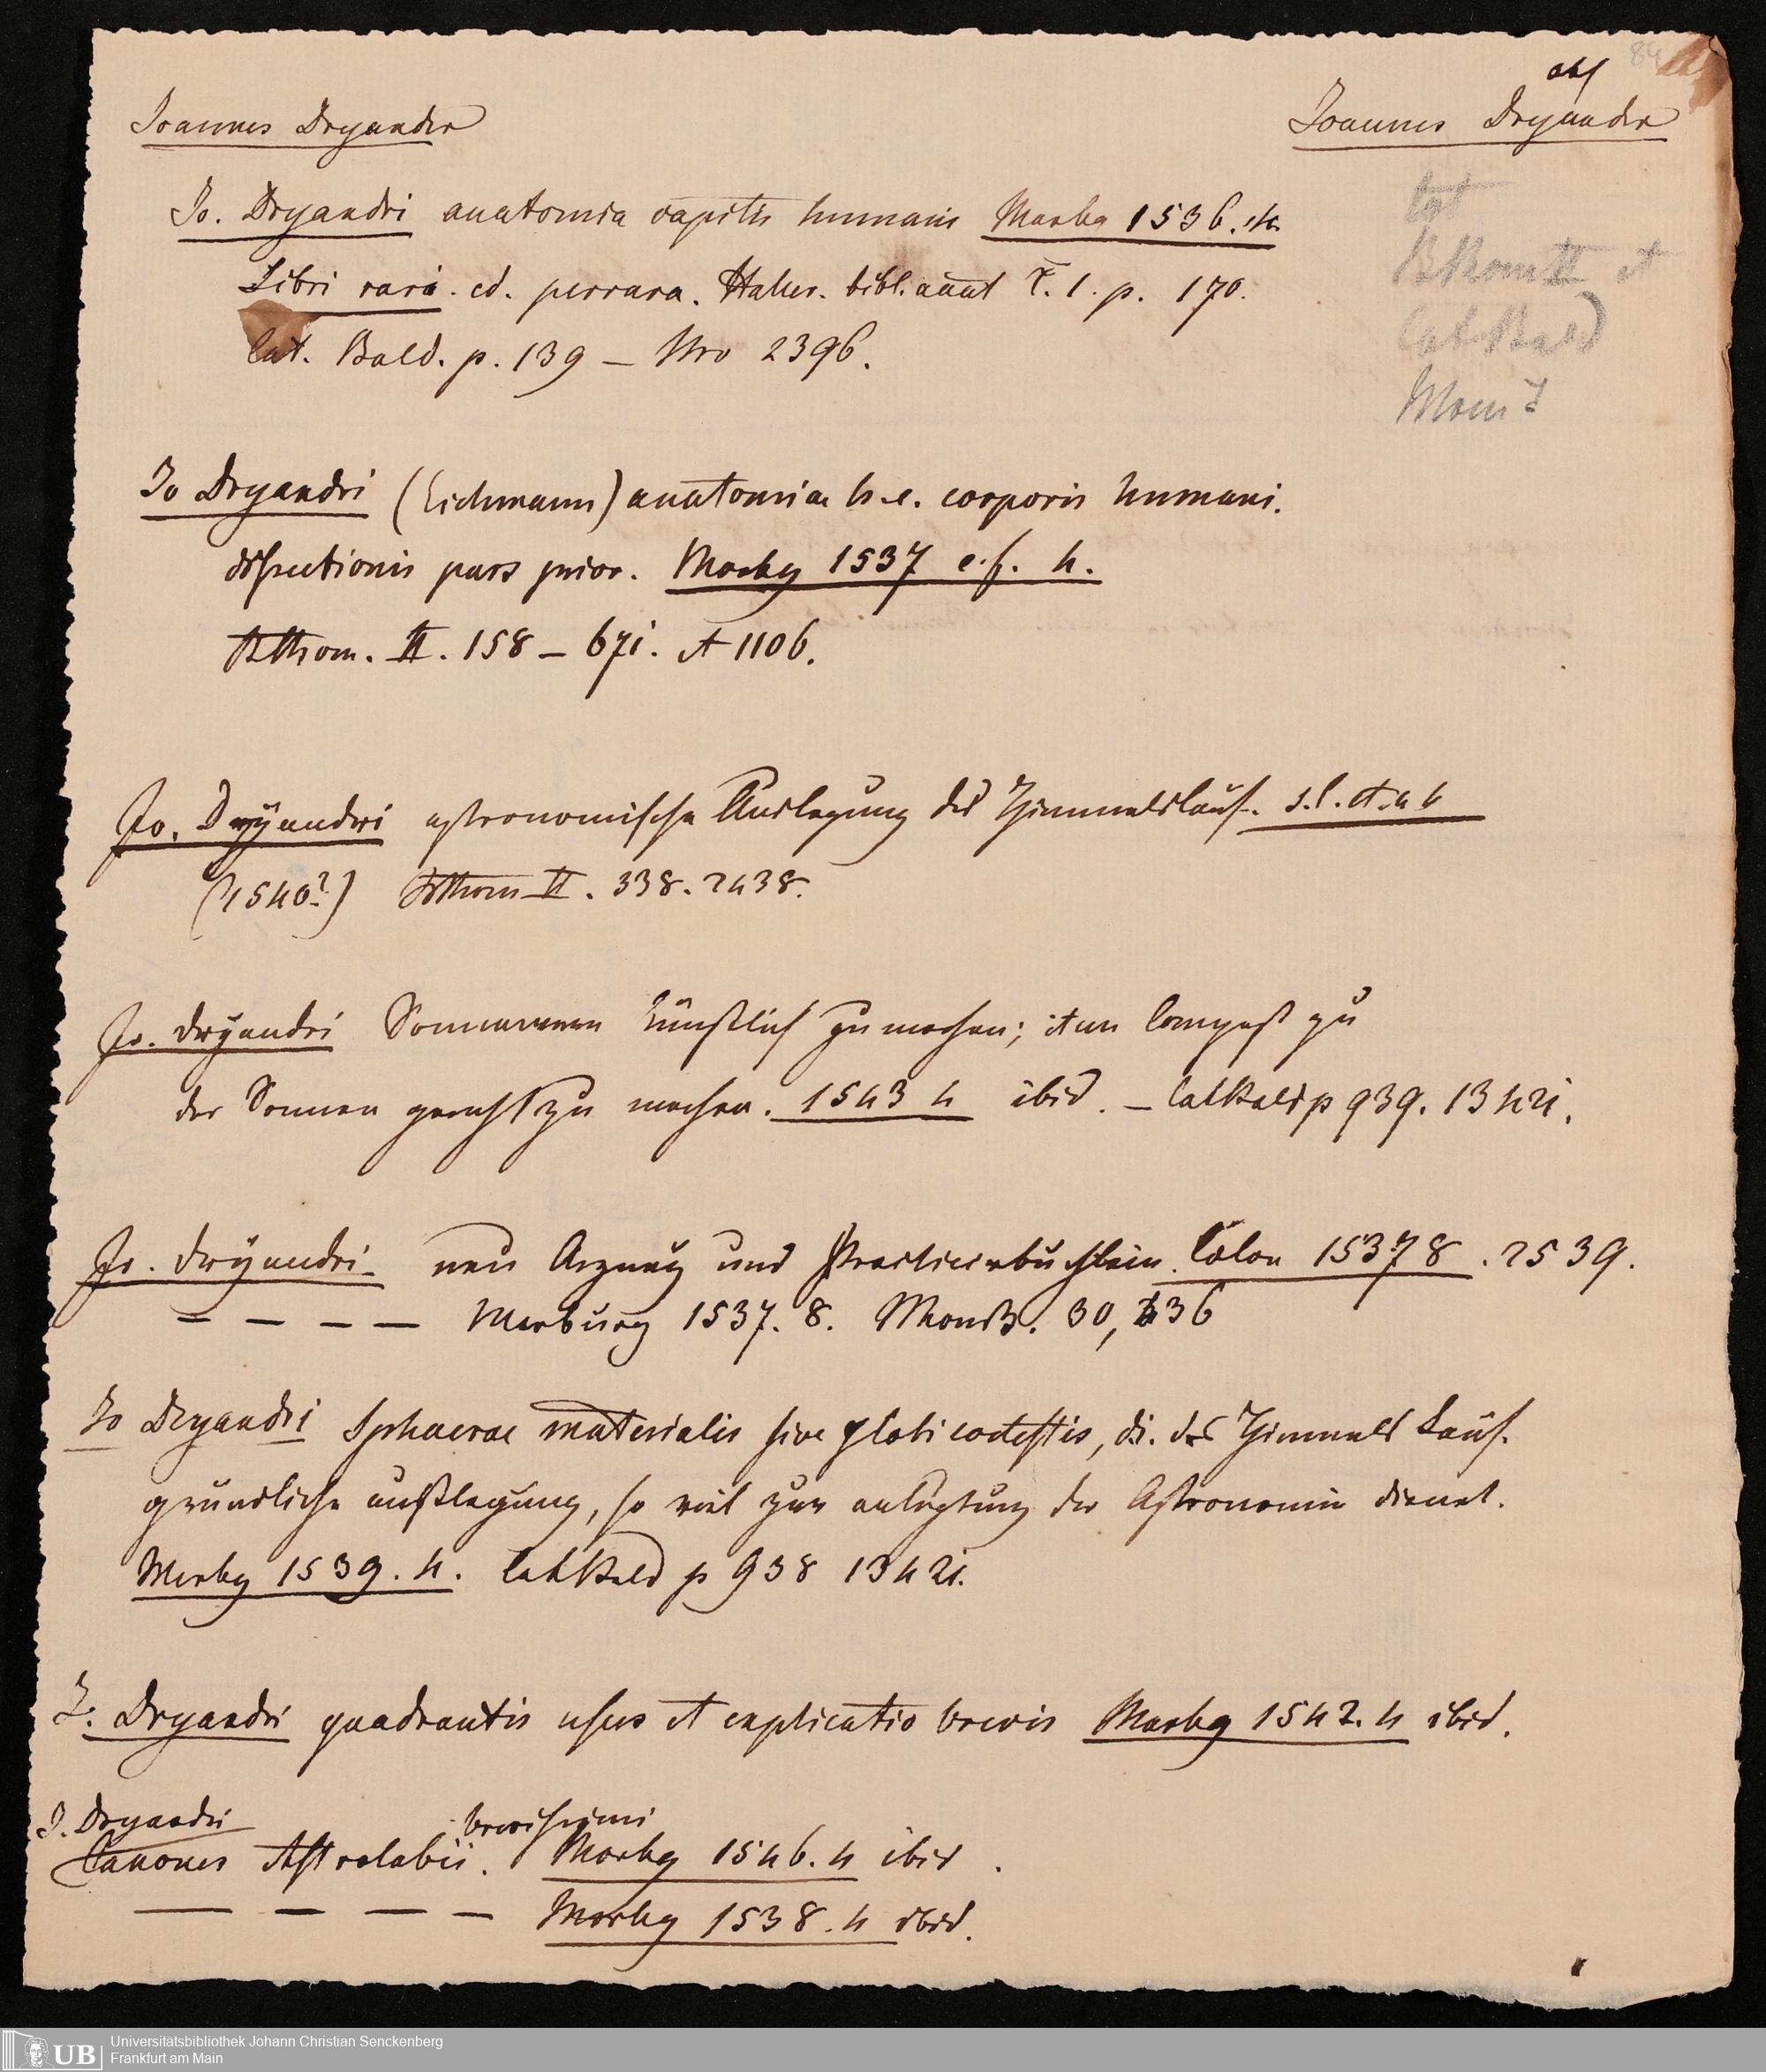 84
abs
Joannes Dryander
Joannes Dryander
Jo. Dryandri anatomia capitis humani Marbg 1536. 4.
Libri rari. ed. perrara. Haller. bibl. anat T. 1. p. 170.
Cat. Bald. p. 139 – Nro 2396.
Cat Bald
Jo Dryandri (Eichmann) anatomiae h. e. corporis humani.
dissectionis pars prior. Marbg 1537 c. f. 4.
BThom. II. 158 – 671. et 1106.
Jo. Dryandri astronomische Auslegung des Himmelslauf. s. l. et a 4
(1540?) BThom II. 338. 2438.
Jo. Dryandri Sonnuren künstlich zu machen; item Compast zu
der Sonnen gerecht zu machen. 1543 4 ibid. – Cat Bald p 939. 13421.
Jo. Dryandri neu Arzney und Practicirbüchlein. Colon 1537 8. 2539.
– – – – Marburg 1537. 8. 30, 36
Jo Dryandri Sphaerae materialis sive globi coelestis, di. des Himmels Lauf.
gründliche außlegung, so viel zur anleytung der Astronomie dienet.
Marbg 1539. 4. Cat Bald p 938 13421.
J. Dryandri quadrantis usus et explicatio brevis Marbg 1542. 4 ibid.
J. Dryandri
brevissimi
Canones Astrolabii. Marbg 1546. 4 ibid.
– – – – Marbg 1538. 4 ibid.
UB Universitätsbibliothek Johann Christian Senckenberg
Frankfurt am Main